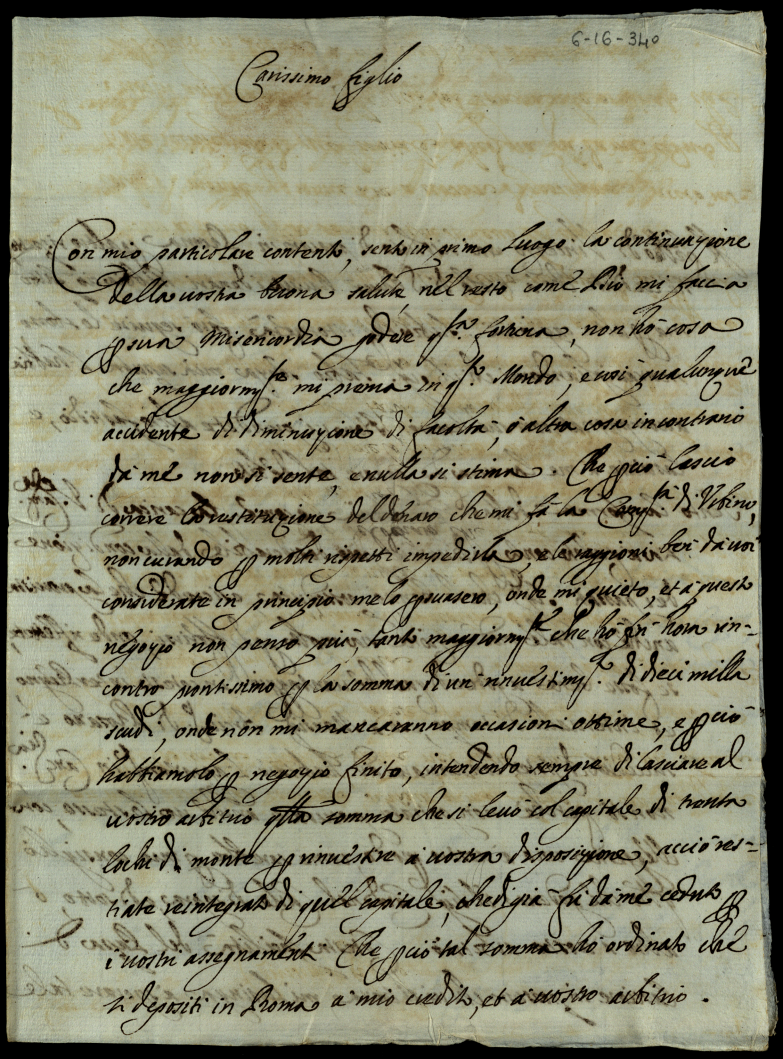 6-16-340
Carissimo figlio
Con mio particolare contento, sento in primo luogo la continuazione
della vostra buona salute, nel resto come Dio mi faccia
p sua Misericordia godere qsta. , non hò cosa
che maggiormte. mi prema in qsto. Mondo, e così qualunque
accidente di diminuzione di facoltà, ò altra cosa in contrario
dà me non si sente, e nulla si stima. Che pciò lascio
correre la restituzione del denaro che mi fà la di Urbino,
non curando p molti rispetti impedirla, e le raggioni ben dà voi
considerate in principio me lo psuasero, onde mi quieto, et à questo
negozio non penso più, tanto maggiormte. che hò fin' hora rin=
contro prontissimo p la somma di un rinvestimto. di dieci milla
scudi, onde non mi mancaranno occasioni ottime, e pciò
habbiamolo p negozio finito, intendendo sempre di lasciare al
vostro arbitrio qlla somma che si levò col capitale di trenta
lochi di monte p rinvestire à vostra disposizione, acciò res=
tiate reintegrato di quel capitale, che di già fù dà me ceduto p
i vostri assegnamenti. Che pciò tal somma hò ordinato che
si depositi in Roma à mio credito, et à vostro arbitrio.